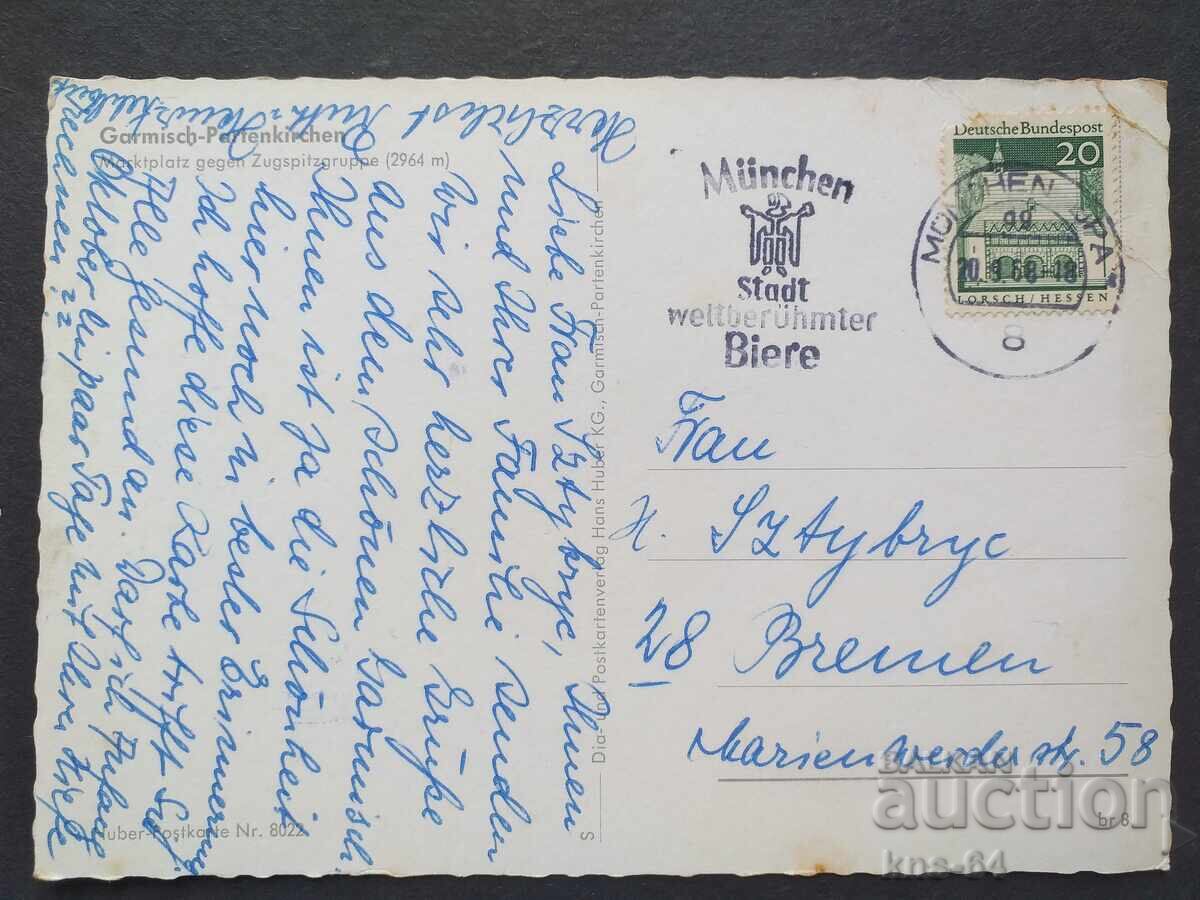 Garmisch-Partenkirchen
Marktplatz gegen Zugspitzgruppe (2964 m)
Liebe Frau Sztybryc, Ihnen
und Ihrer Familie senden
wir sehr herzliche Grüße
aus dem schönen Garmisch.
Ihnen ist ja die Schönheit
hier noch in bester Erinnerung.
Ich hoffe diese Karte trifft Sie
Alle gesund an. Darf ich Anfang
Oktober ein paar Tage mit Ihrer Hilfe
rechnen??
Herzlichst
Ruth
Huber-Postkarte Nr. 8022
S Dia- und Postkartenverlag Hans Huber KG., Garmisch-Partenkirchen
München
Stadt
weltberühmter
Biere
Deutsche Bundespost
20
LORSCH/HESSEN
MÜNCHEN
20.9.68-18
8
Frau
H. Sztybryc
28 Bremen
Marienwerderstr. 58
br 8
BALKAN
auction
kns-64